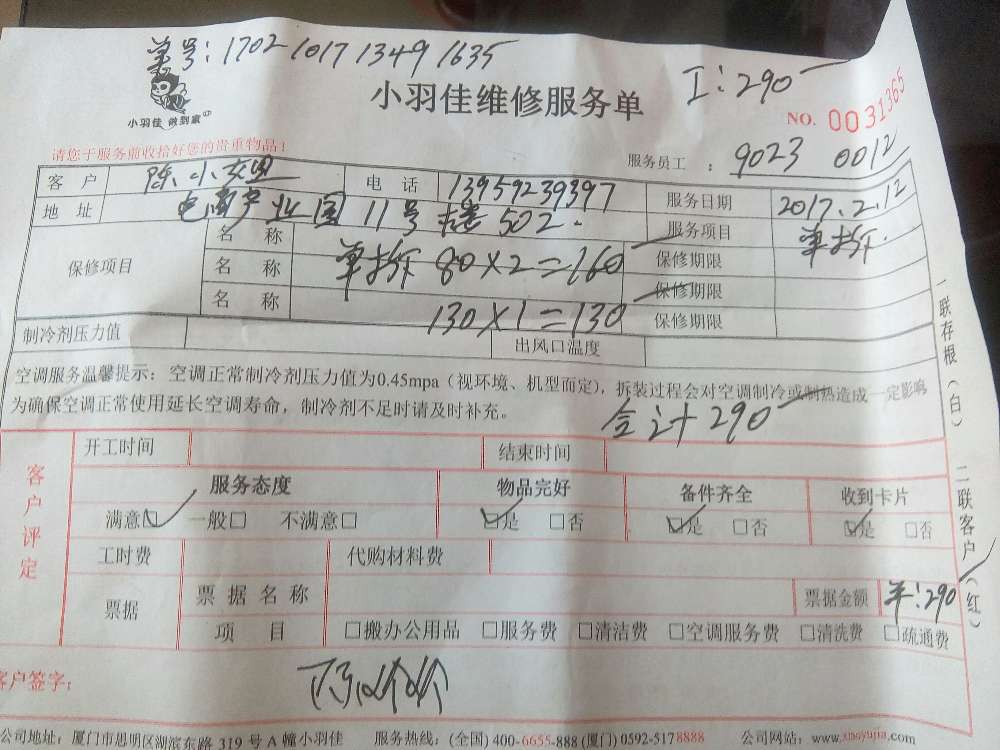 单号:1702 1017 1349 1635
小羽佳 做到家
小羽佳维修服务单
工:290
NO. 0031365
请您于服务前收拾好您的贵重物品!
服务员工 : 9023 0012
客 户 陈小 电 话 13959239397 服务日期 2017.2.12
地 址 电商产业园 11号楼 502. 服务项目 单拆.
保修项目 名 称 保修期限
名 称 单拆 80×2=160 保修期限
名 称 130×1=130 保修期限
制冷剂压力值 出风口温度
空调服务温馨提示:空调正常制冷剂压力值为0.45mpa(视环境、机型而定),拆装过程会对空调制冷或制热造成一定影响
为确保空调正常使用延长空调寿命,制冷剂不足时请及时补充。
合计290
客户评定
开工时间 结束时间
服务态度 物品完好 备件齐全 收到卡片
满意☑ 一般□ 不满意□ ☑是 □否 ☑是 □否 ☑是 □否
工时费 代购材料费
票据 票据名称 票据金额 单:290
项 目 □搬办公用品 □服务费 □清洁费 □空调服务费 □清洗费 □疏通费
客户签字:
公司地址:厦门市思明区湖滨东路 319 号 A 幢小羽佳 服务热线:(全国) 400-6655-888 (厦门) 0592-5178888 公司网站:www.xiaoyujia.com
一联存根(白) 二联客户(红)